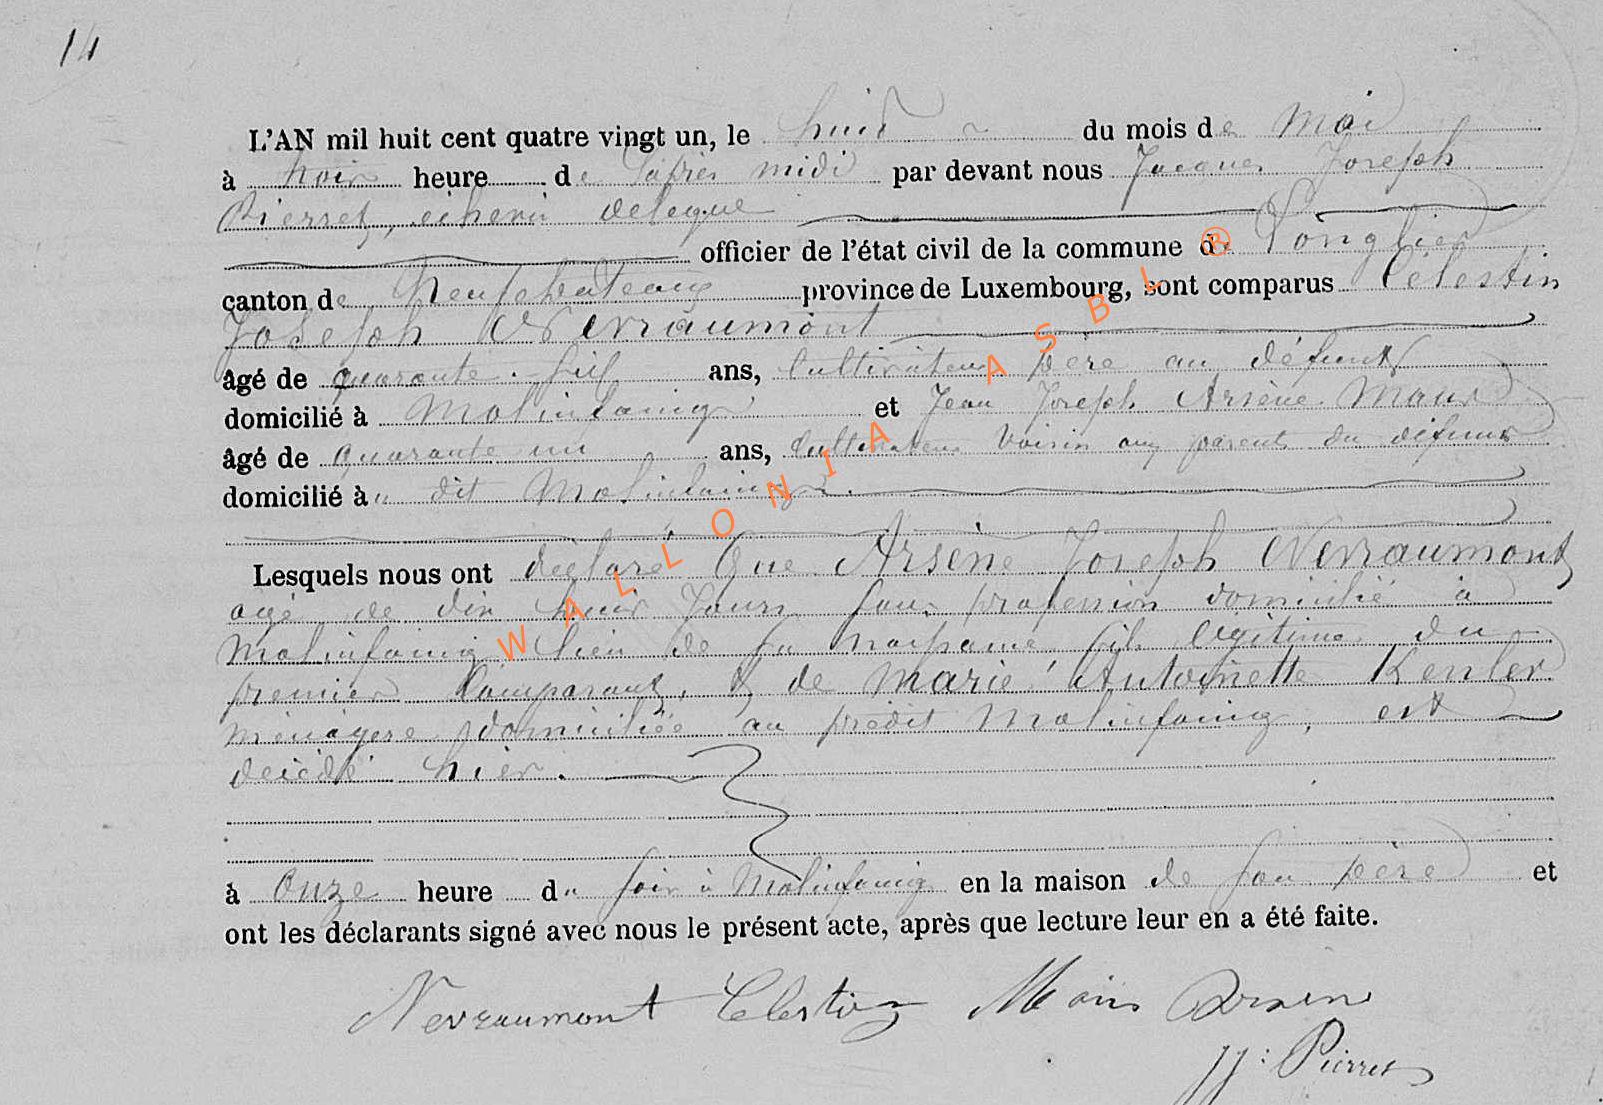 14
L'AN mil huit cent quatre vingt un, le huit du mois de Mai
à trois heure de l'après midi par devant nous Jacques Joseph
Pierret, échevin délégué
officier de l'état civil de la commune de Longlier
canton de Neufchateau province de Luxembourg, sont comparus Célestin
Joseph Nevraumont
âgé de quarante ans, Cultivateur père au défunt
domicilié à Molinfaing et Jean Joseph Arsène
âgé de quarante un ans, Cultivateur voisin aux parents du défunt
domicilié à dit Molinfaing
Lesquels nous ont déclaré Que Arsène Joseph Nevraumont
agé de dix huit Jours sans profession domicilié à
Molinfaing lieu de sa naissance fils légitime du
premier Comparant, & de Marie Antoinette Kenler
ménagère domiciliée au prédit Molinfaing, est
décédé hier.
à Onze heure du soir à Molinfaing en la maison de son père et
ont les déclarants signé avec nous le présent acte, après que lecture leur en a été faite.
Nevraumont Celestin Arsen
JJ: Pierret
WALLONIA ASBL ®